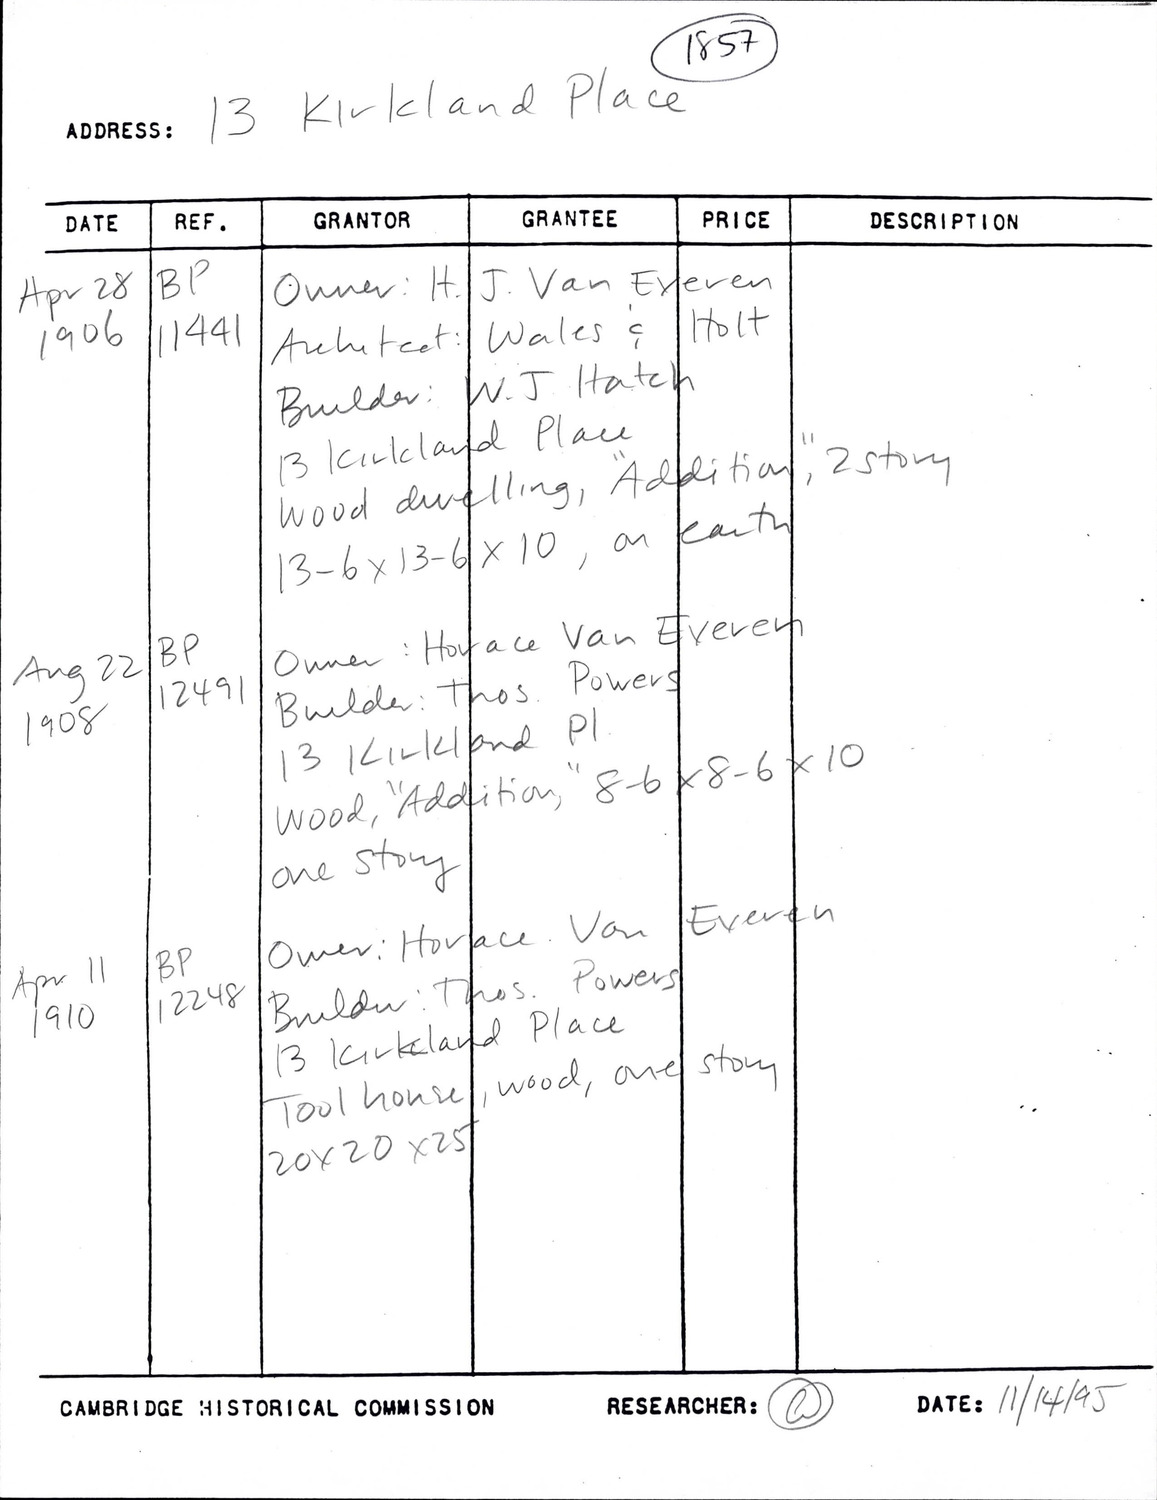 1857
ADDRESS: 13 Kirkland Place
DATE REF. GRANTOR GRANTEE PRICE DESCRIPTION
Apr 28 BP Owner: H. J. Van Everen
1906 11441 Architect: Wales & Holt
Builder: W.J Hatch
13 Kirkland Place
Wood dwelling, "Addition", 2 story
13-6 x 13-6 x 10, on earth
Aug 22 BP Owner: Horace Van Everen
1908 12491 Builder: Thos. Powers
13 Kirkland Pl.
Wood, "Addition," 8-6 x 8-6 x 10
one story
Apr 11 BP Owner: Horace Van Everen
1910 12248 Builder: Thos. Powers
13 Kirkland Place
Tool house, wood, one story
20x20 x25
CAMBRIDGE HISTORICAL COMMISSION RESEARCHER: DATE: 11/14/95